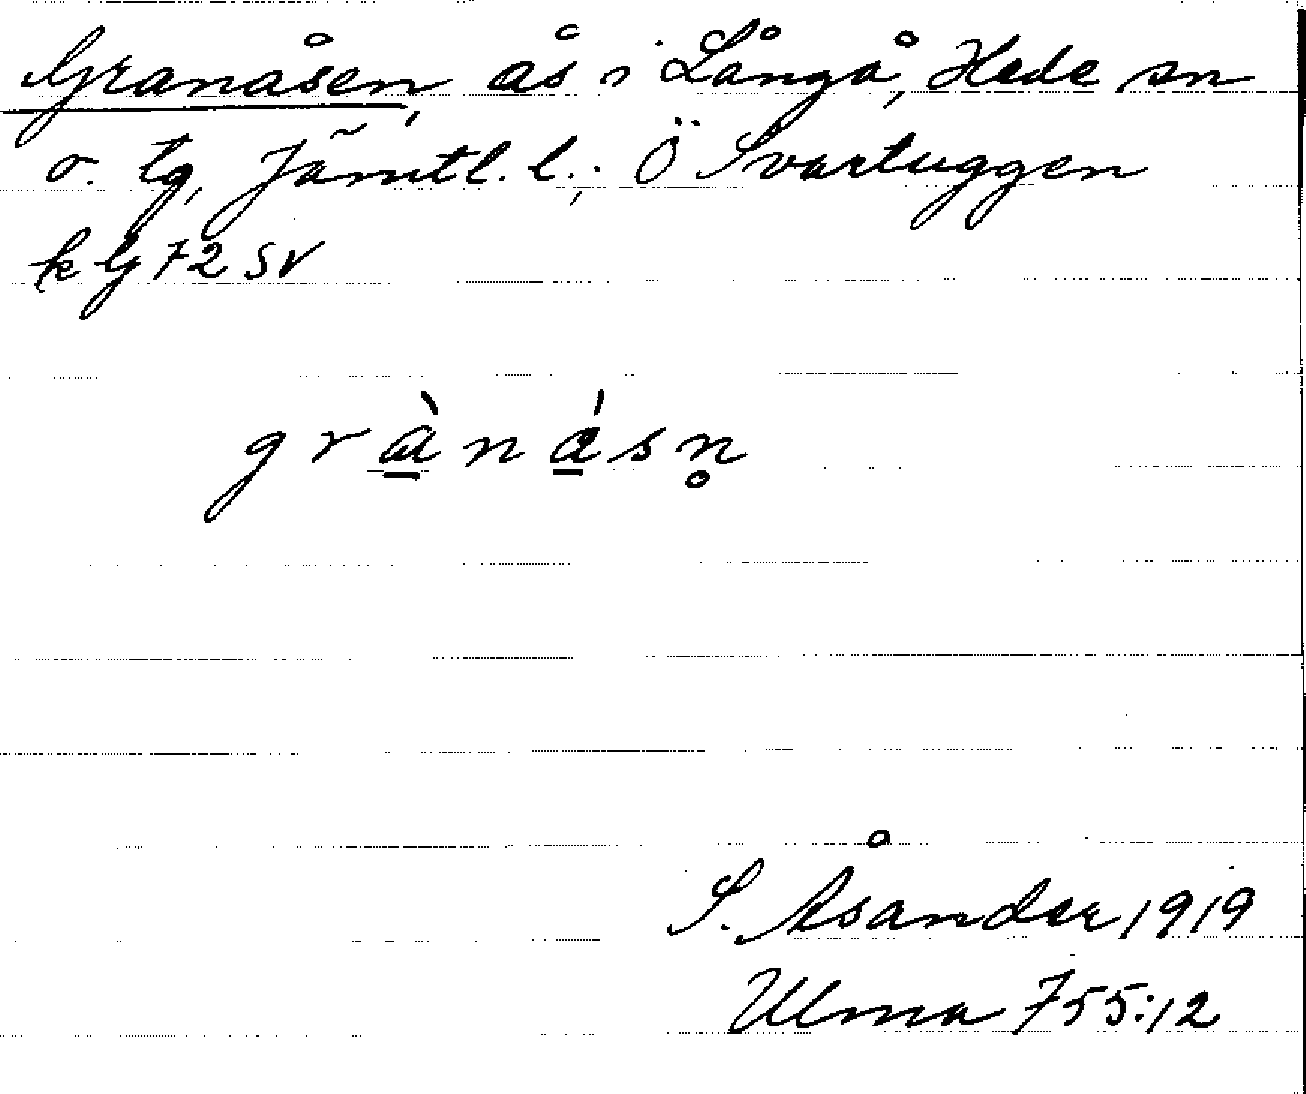 Granåsen, ås i Långå, Hede sn
o. tg, Jämtl. l.; Ö Svartuggen
k G 72 SV
g r à̲ n á̲ s n̥
S. Åsander 1919
Ulma 755:12